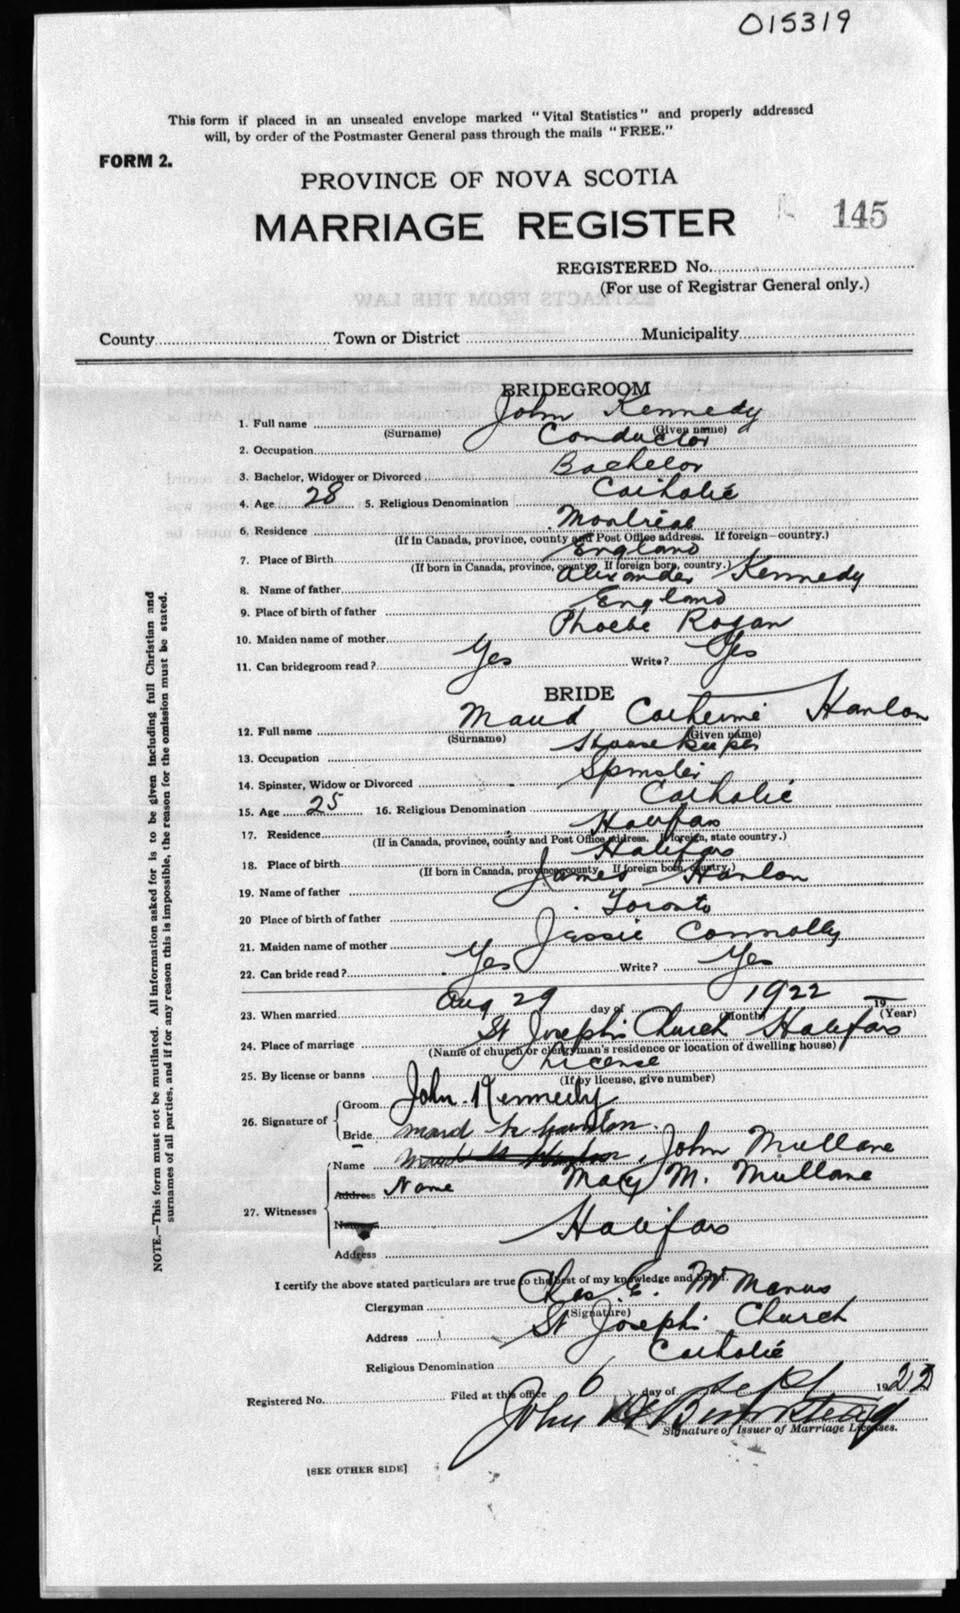 015319
This form if placed in an unsealed envelope marked "Vital Statistics" and properly addressed
will, by order of the Postmaster General pass through the mails "FREE."
FORM 2.
PROVINCE OF NOVA SCOTIA
MARRIAGE REGISTER 145
REGISTERED No.
(For use of Registrar General only.)
EXTRACTS FROM THE LAW
County Town or District Municipality
BRIDEGROOM
1. Full name John Kennedy
(Surname) (Given name)
2. Occupation Conductor
3. Bachelor, Widower or Divorced Bachelor
4. Age 28 5. Religious Denomination Catholic
6. Residence Montreal
(If in Canada, province, county and Post Office address. If foreign—country.)
7. Place of Birth England
(If born in Canada, province, county. If foreign born, country.)
8. Name of father Alexander Kennedy
9. Place of birth of father England
10. Maiden name of mother Phoebe Rogan
11. Can bridegroom read? Yes Write? Yes
BRIDE
12. Full name Maud Catherine Hanlon
(Surname) (Given name)
13. Occupation House keeper
14. Spinster, Widow or Divorced Spinster
15. Age 25 16. Religious Denomination Catholic
17. Residence Halifax
(If in Canada, province, county and Post Office address. If foreign, state country.)
18. Place of birth Halifax
(If born in Canada, province, county. If foreign born, country.)
19. Name of father James Hanlon
20 Place of birth of father Toronto
21. Maiden name of mother Jessie Connolly
22. Can bride read? Yes Write? Yes
23. When married Aug 29 day of 1922 19
(Month) (Year)
24. Place of marriage St Joseph's Church Halifax
(Name of church or clergyman's residence or location of dwelling house)
25. By license or banns License
(If by license, give number)
26. Signature of Groom John Kennedy
Bride Maud K Hanlon.
27. Witnesses Name John Mullane
Address Name Mary M. Mullane
Halifax
Address
I certify the above stated particulars are true to the best of my knowledge and belief.
Clergyman Chas. E. McManus
(Signature)
Address St Joseph's Church
Religious Denomination Catholic
Registered No. Filed at this office 6 day of Sept 1922
John
Signature of Issuer of Marriage Licenses.
[SEE OTHER SIDE]
NOTE.—This form must not be mutilated. All information asked for is to be given including full Christian and
surnames of all parties, and if for any reason this is impossible, the reason for the omission must be stated.